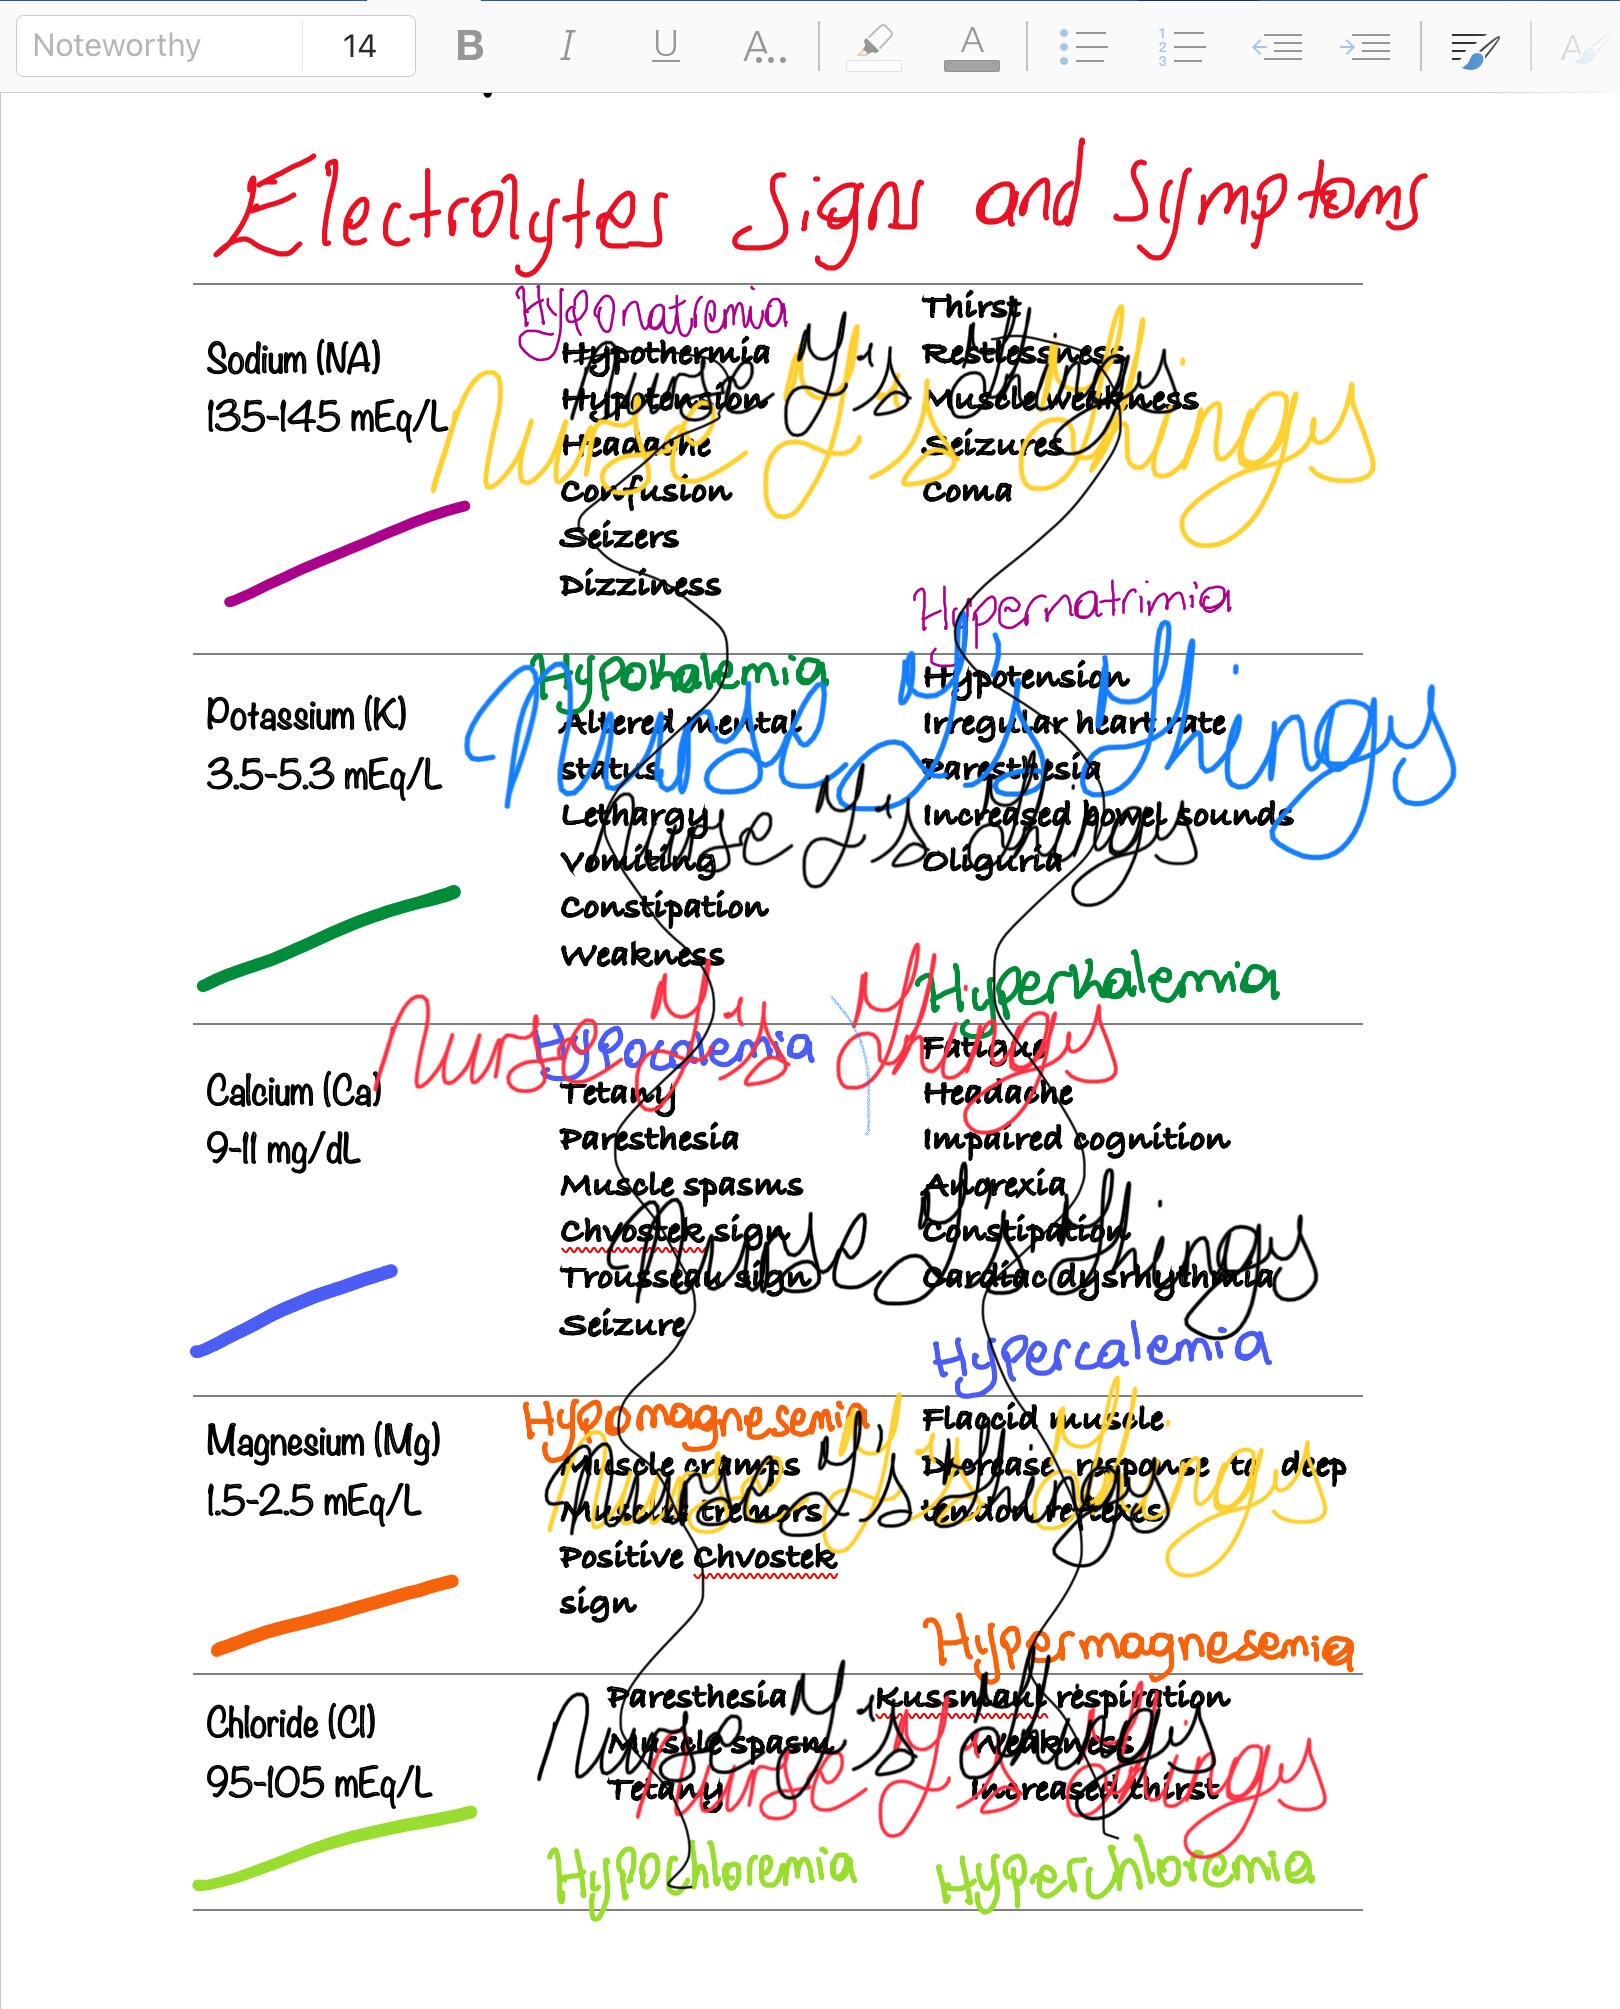 Noteworthy 14 B I U A... A
Electrolytes Signs and Symptoms
Sodium (NA)
135-145 mEq/L
Hyponatremia
Hypothermia
Hypotension
Headache
Confusion
Seizers
Dizziness
Thirst
Restlessness
Muscle weakness
Seizures
Coma
Hypernatrimia
Nurse Y's things
Nurse Y's things
Potassium (K)
3.5-5.3 mEq/L
Hypokalemia
Altered mental
status
Lethargy
Vomiting
Constipation
Weakness
Hypotension
Irregular heart rate
Paresthesia
Increased bowel sounds
Oliguria
Hyperkalemia
Nurse Y's things
Nurse Y's things
Calcium (Ca)
9-11 mg/dL
Hypocalemia
Tetany
Paresthesia
Muscle spasms
Chvostek sign
Trousseau sign
Seizure
Fatigue
Headache
Impaired cognition
Anorexia
Constipation
Cardiac dysrhythmia
Hypercalemia
Nurse Y's things
Nurse Y's things
Magnesium (Mg)
1.5-2.5 mEq/L
Hypomagnesemia
Muscle cramps
Muscle tremors
Positive Chvostek
sign
Flaccid muscle
Decrease response to deep
tendon reflexes
Hypermagnesemia
Nurse Y's things
Nurse Y's things
Chloride (Cl)
95-105 mEq/L
Paresthesia
Muscle spasm
Tetany
Hypochloremia
Kussmaul respiration
Weakness
Increased thirst
Hyperchloremia
Nurse Y's things
Nurse Y's things